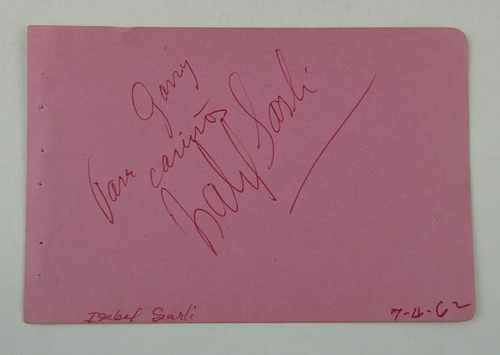 Garry
Para cariños
Isabel Sarli
Isabel Sarli
7-4-62